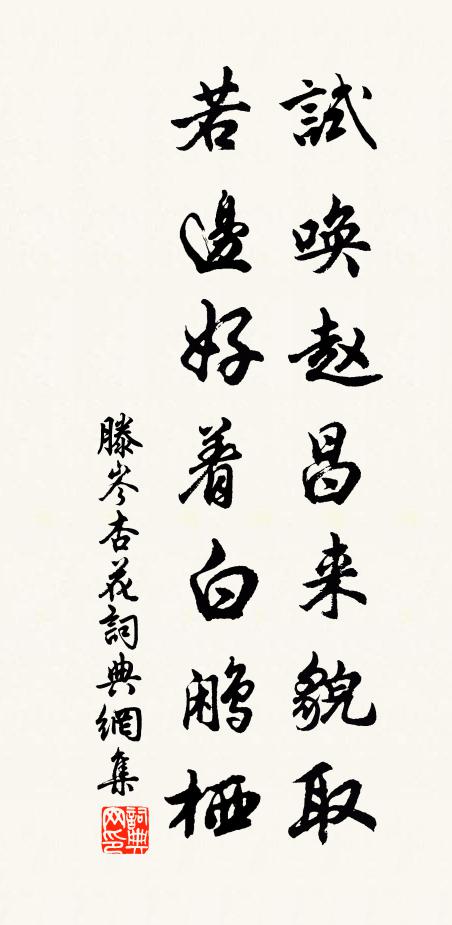 試唤赵昌来貌取
若邊好着白鷴栖
滕岑杏花詞典網集
詞典网印